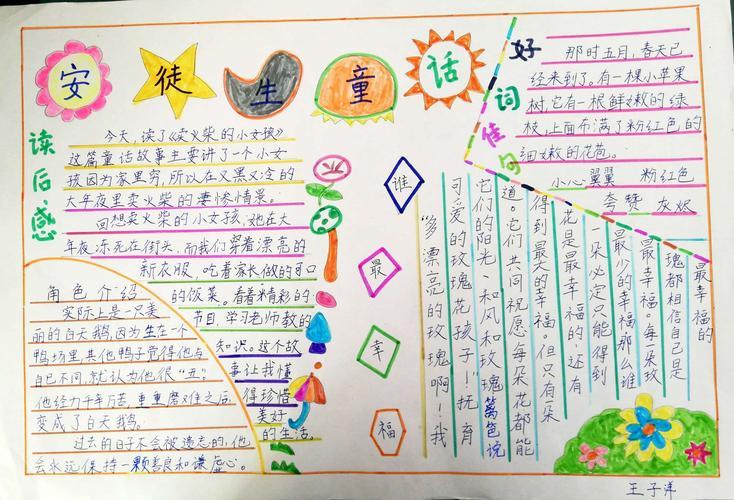 安徒生童话
读后感
今天,读了《卖火柴的小女孩》
这篇童话故事主要讲了一个小女
孩因为家里穷,所以在又黑又冷的
大年夜里卖火柴的凄惨情景。
回想卖火柴的小女孩,她在大
年夜冻死在街头,而我们穿着漂亮的
新衣服,吃着家长做的可口
的饭菜。看着精彩的
节目,学习老师教的
知识。这个故
事让我懂
得珍惜
美好
的生活。
角色介绍
实际上是一只美
丽的白天鹅,因为生在一个
鸭场里,其他鸭子觉得他与
自己不同,就认为他很“丑”。
他经力千年万苦、重重磨难之后
变成了白天鹅。
过去的日子不会被遗忘的,他
会永远保持一颗善良和谦虚心。
好词佳句
那时五月,春天已
经来到了。有一棵小苹果
树,它有一根鲜嫩的绿
枝,上面布满了粉红色的
细嫩的花苞。
小心翼翼 粉红色
夸赞 灰烬
谁最幸福
“多漂亮的玫瑰啊!我
可爱的玫瑰花孩子!”抚育
它们的阳光、和风和玫瑰篱笆说
道。它们共同祝愿每朵花都能
得到最大的幸福。但只有一朵
花是最幸福的,还有
一朵必定只能得到
最少的幸福,那么谁
最幸福。每朵玫
瑰都相信自己是
最幸福的
王子洋